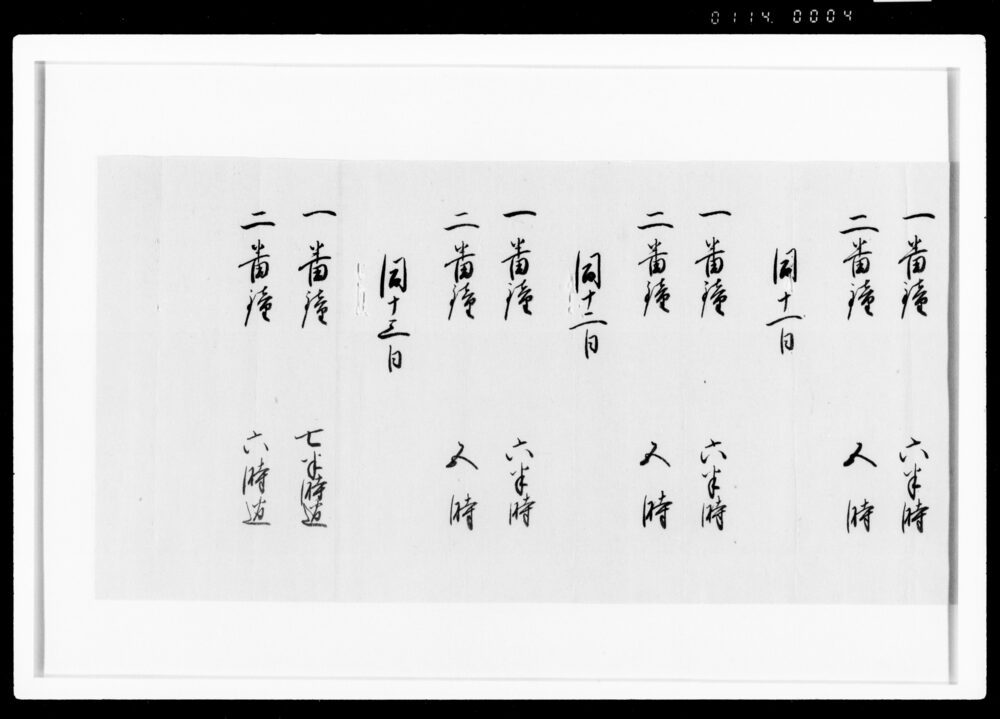 0114. 0004
一番鐘 六半時
二番鐘 五時
同十一日
一番鐘 六半時
二番鐘 五時
同十二日
一番鐘 六半時
二番鐘 五時
同十三日
一番鐘 七半時過
二番鐘 六時過